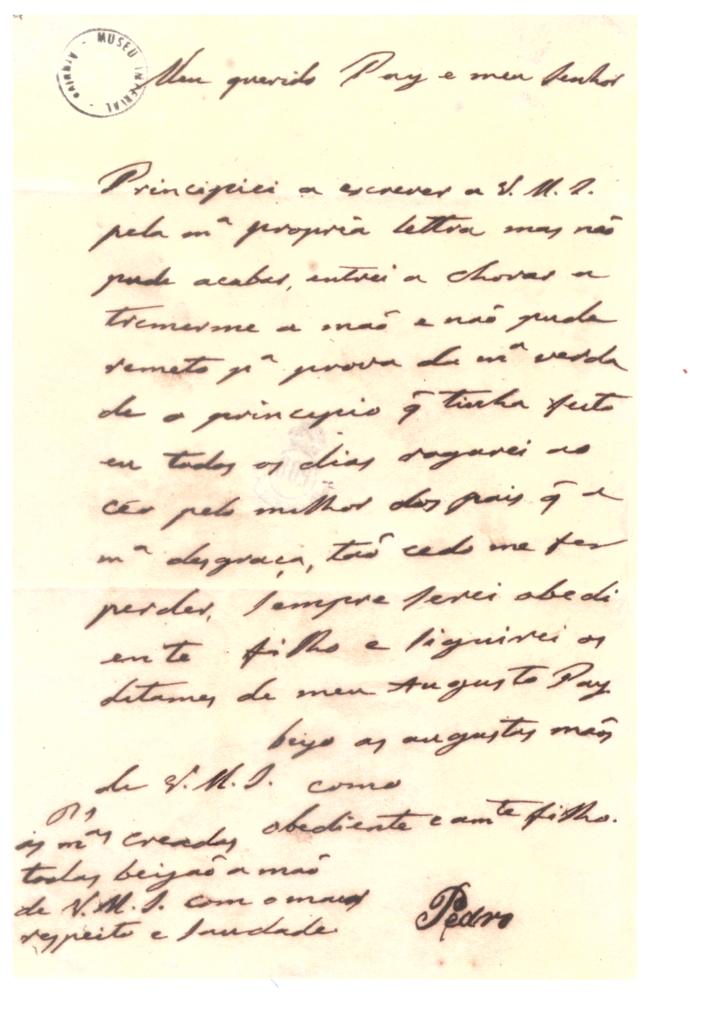 MUSEU IMPERIAL
Meu querido Pay e meu Senhor
Principiei a escrever a V. M. I.
pela mª propria lettra mas não
pude acabar, entrei a chorar a
tremerme a maõ e naõ pude
remeto pª prova da mª verda
de o principio q̃ tinha feito
eu todos os dias rogarei ao
céo pelo milhor dos pais q̃ a
mª desgraça, taõ cedo me fez
perder, sempre serei obedi
ente filho e siguirei os
ditames de meu Augusto Pay
beijo as augustas maõs
de V. M. I. como
obediente e amte filho.
Pedro
as mªs creadas
todas beijaõ a maõ
de V. M. I. com o maior
respeito e saudade